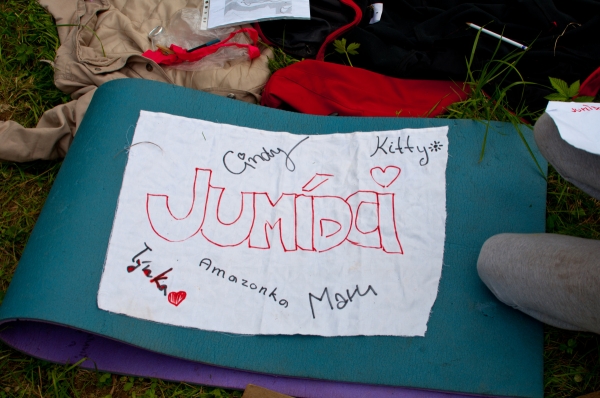 Cindy
Kitty*
JUMÍDCI
Amazonka
Maru